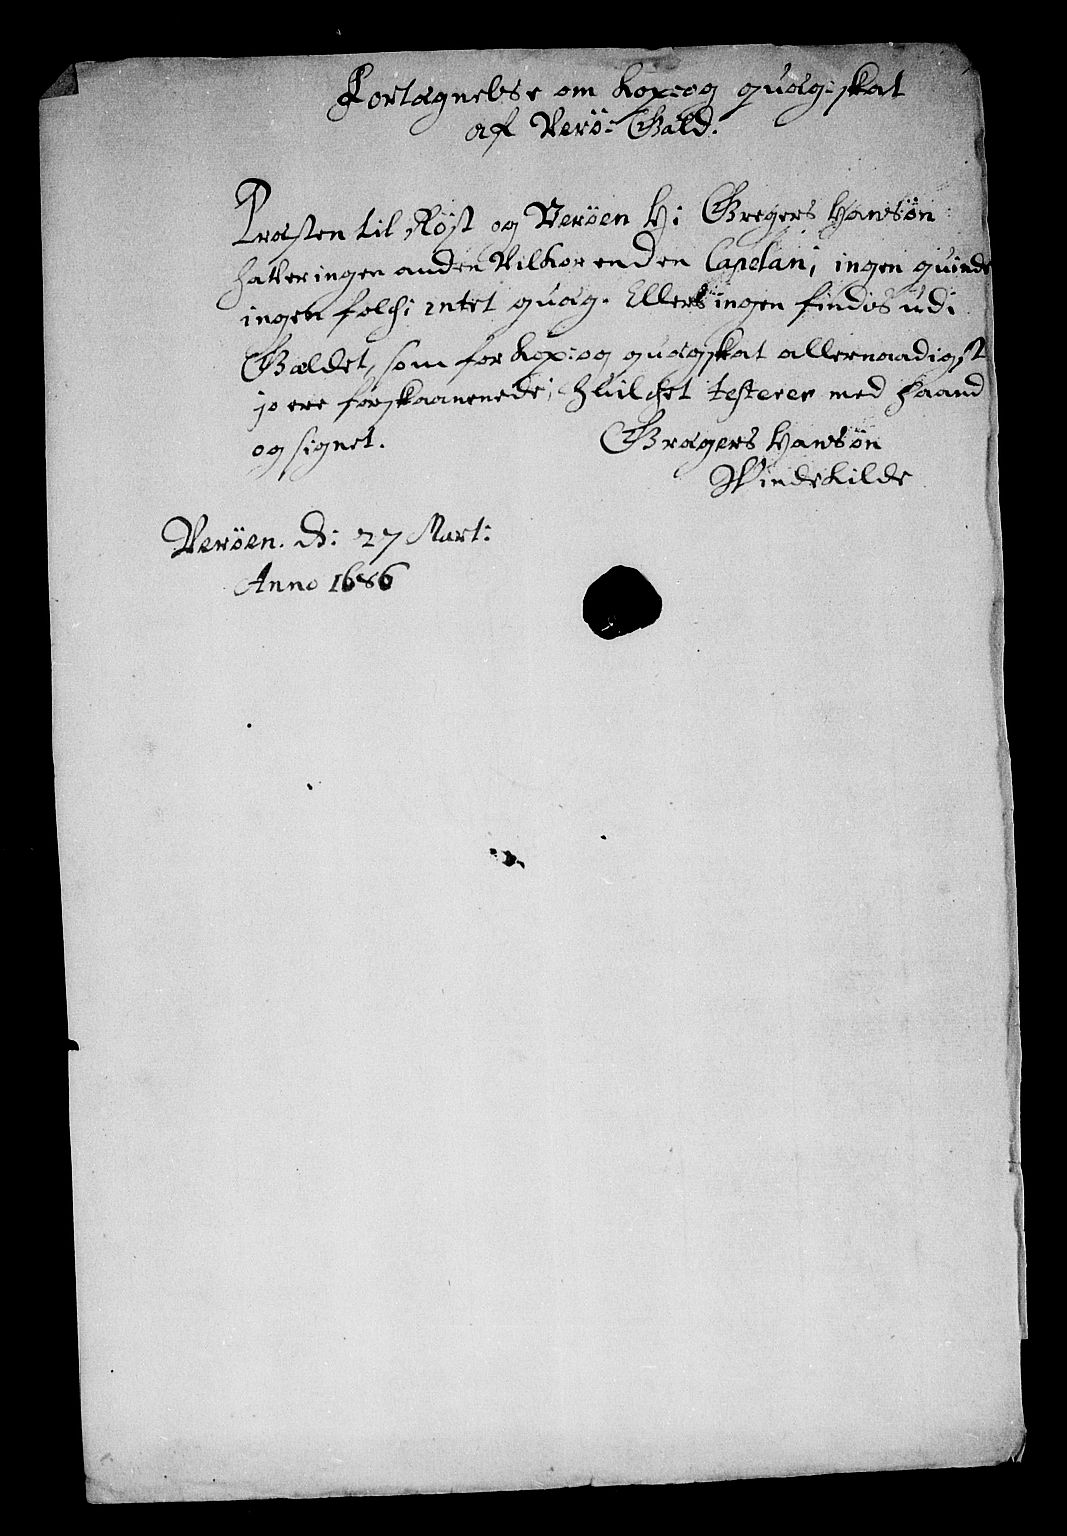 Fortægnelse om Kop: og quæg: skat
af Verö: Gæld.
Præsten til Röst og Veröen H: Gregers Hansön
haver ingen anden Vilkor end en Capelan; ingen quinde
ingen folch: intet quæg. Ellers ingen findis udi
Gældet, som for Kop: og quægskat allernaadigst
jo ere forskaanede; Huilchet testerer med Haand
og signet. Grægers Hansön
Windekilde
Veröen. d: 27 Mart:
Anno 1686